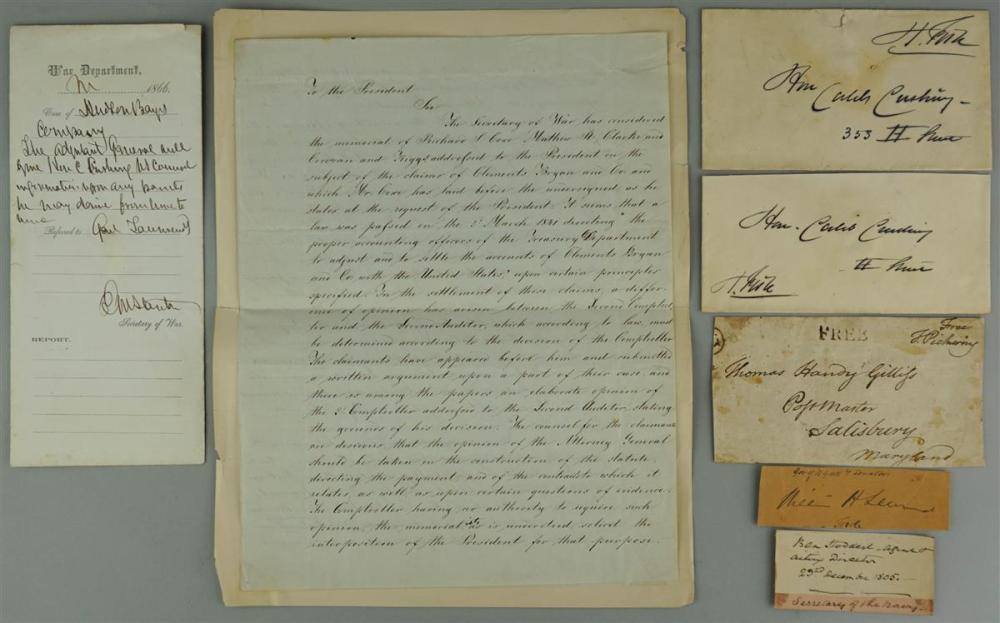 War Department,
1866.
Case of Hudson Bays
Company
The Adjutant General will
give Hon C Cushing
information upon any points
he may desire from time to
time
Referred to Genl Townsend
Secretary of War.
REPORT.
To the President
Sir
The Secretary of War has considered
the memorial of Richard S. Coxe Mathew St. Clarke and
Corcoran and Riggs addressed to the President on the
subject of the claims of Clements Bryan and Co and
which Mr Coxe has laid before the undersigned as he
states at the request of the President. It seems that a
law was passed on the 3d March 1841 directing "the
proper accounting officers of the Treasury Department
to adjust and to settle the accounts of Clements Bryan
and Co with the United States" upon certain principles
specified. In the settlement of these claims, a differ-
ence of opinion has arisen between the Second Comptrol-
ler and the Second Auditor, which according to law, must
be determined according to the decision of the Comptroller
The claimants have appeared before him and submitted
a written argument upon a part of their case, and
there is among the papers an elaborate opinion of
the 2d Comptroller addressed to the Second Auditor, stating
the grounds of his decision. The counsel for the claimants
are desirous, that the opinion of the Attorney General
should be taken on the construction of the statute,
directing the payment, and of the contracts to which it
relates, as well, as upon certain questions of evidence.
The Comptroller having no authority to require such
opinion, the memorial as is understood, solicit the
interposition of the President for that purpose.
H. Fish
Hon
Caleb Cushing
353 H Street
Hon. Caleb Cushing
H Street
H. Fish
FREE
Free
T. Pickering
Thomas Handy Gilliss
Post Master
Salisbury
Maryland
Ben Stoddert - Agent &
acting Director
23rd December 1805.
Secretary of the Navy